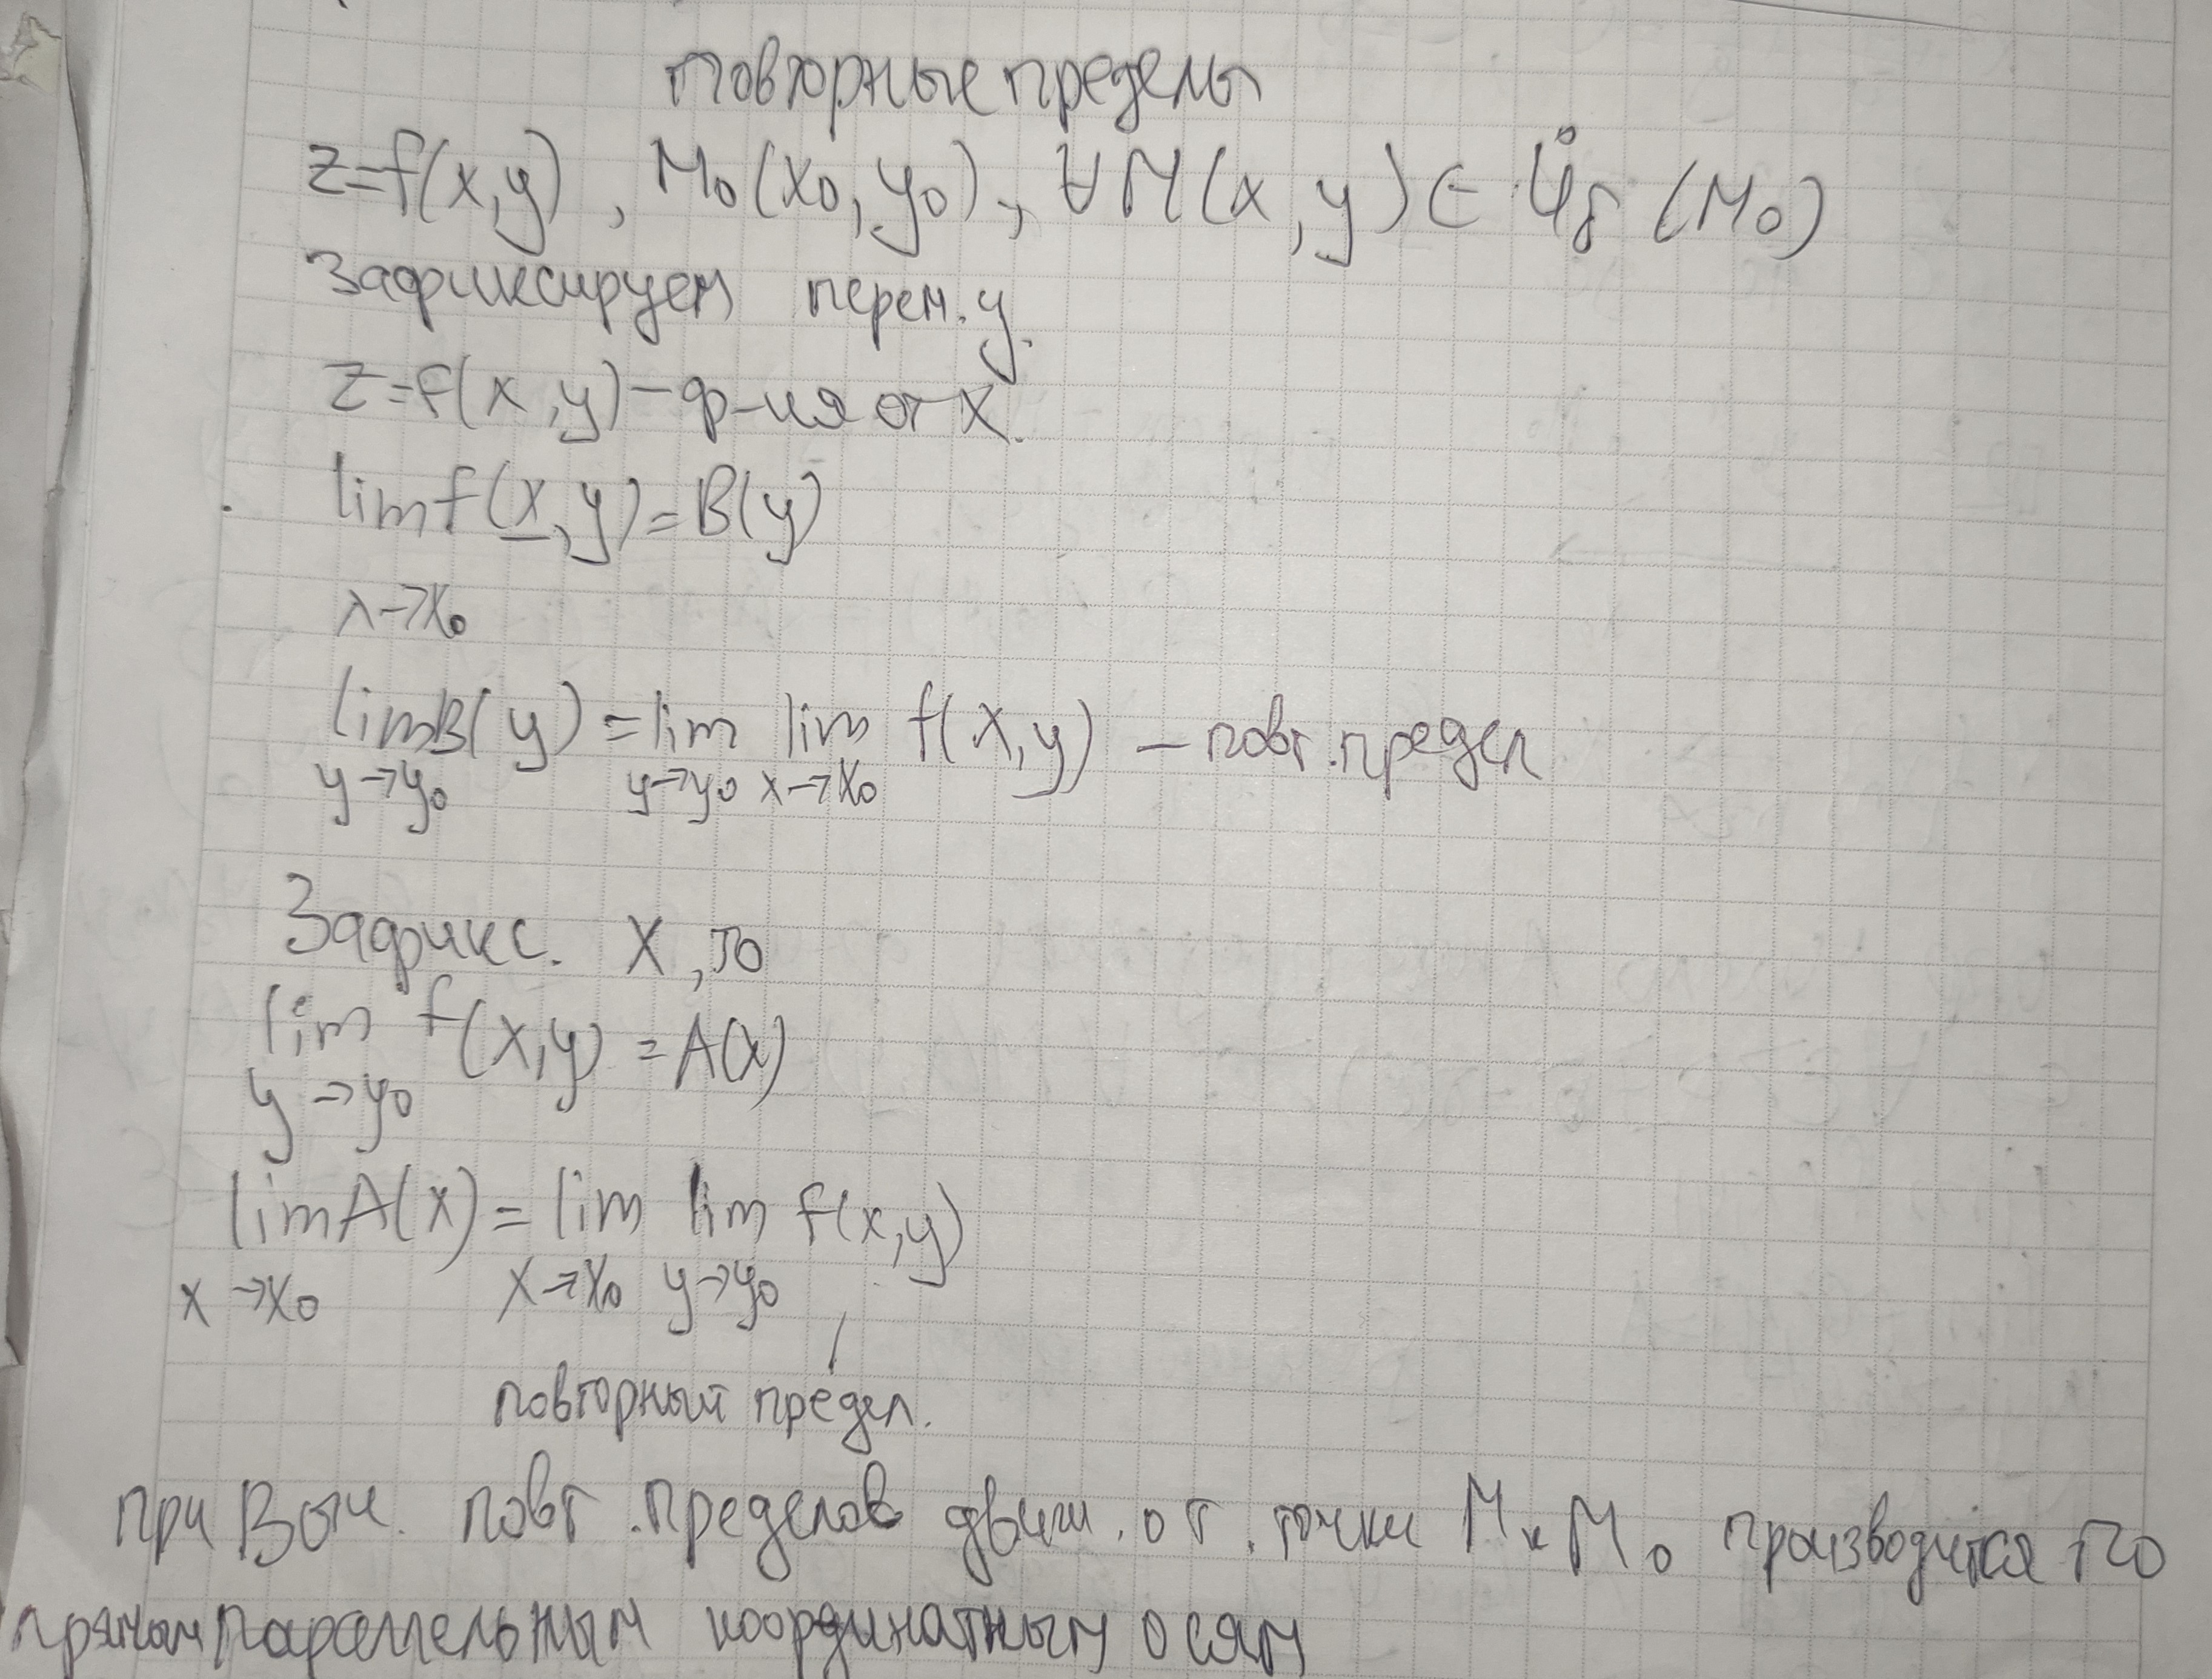 Повторные пределы
z=f(x,y), M₀(x₀,y₀), ∀M(x,y)∈Ůδ(M₀)
Зафиксируем перем. y.
z=f(x,y)–ф-ия от x.
lim f(x,y)=B(y)
x→x₀
lim B(y)=lim lim f(x,y) – повт. предел
y→y₀ y→y₀ x→x₀
Зафикс. x, то
lim f(x,y)=A(x)
y→y₀
lim A(x)=lim lim f(x,y)
x→x₀ x→x₀ y→y₀
повторный предел.
при выч. повт. пределов движ. от. точки M к M₀ производится по
прямым параллельным координатным осям